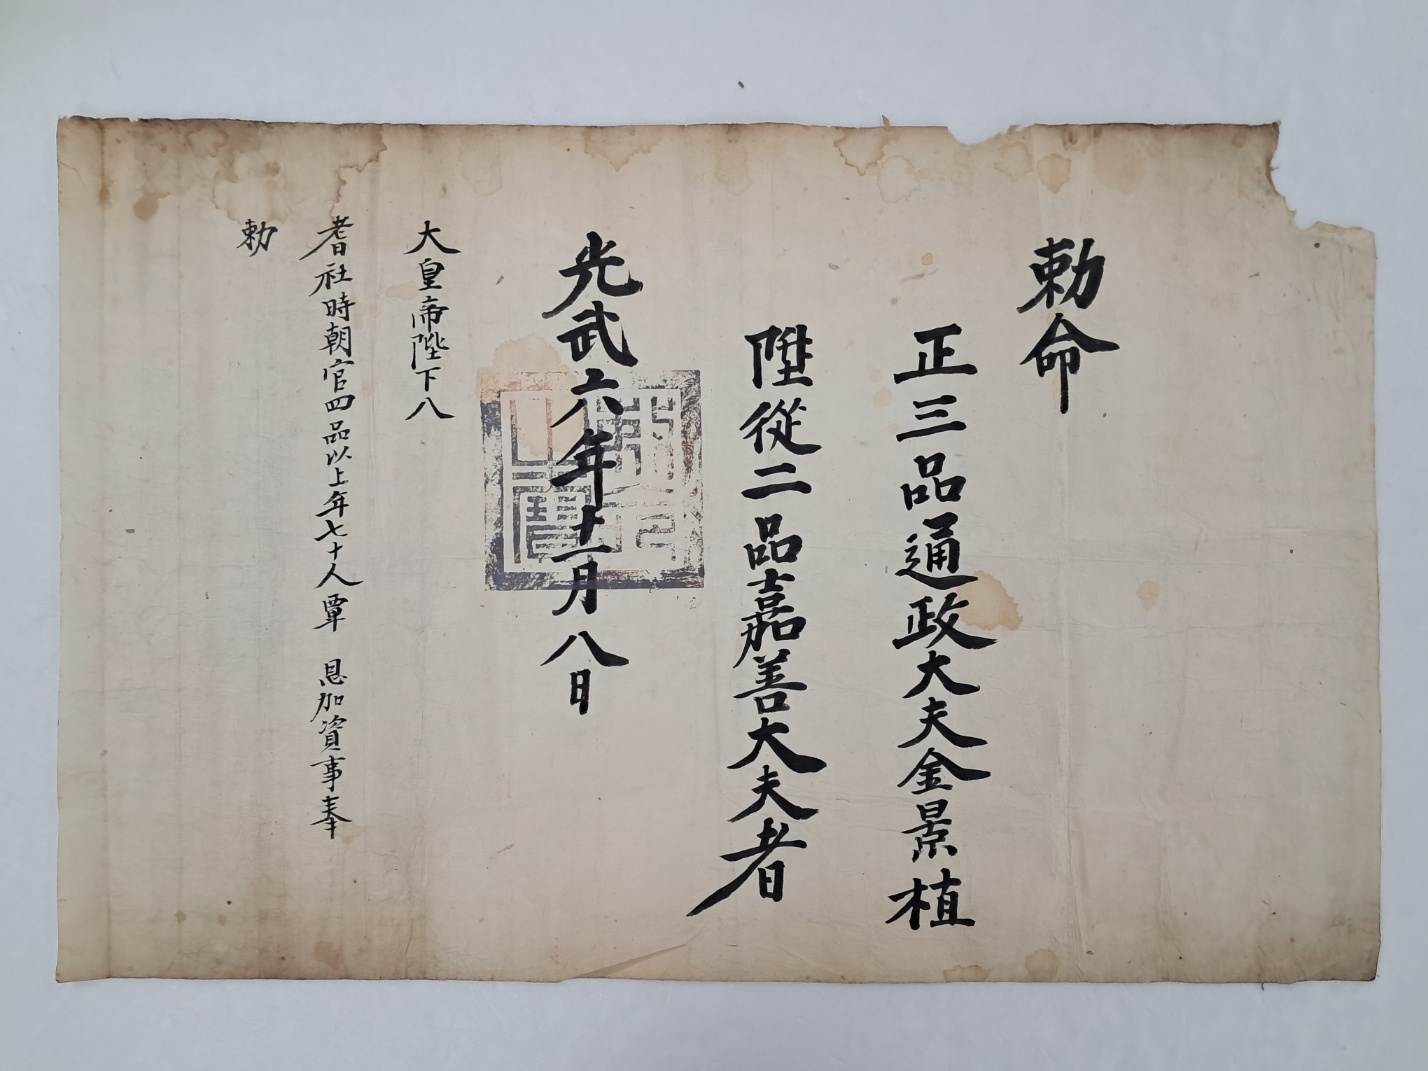 勅命
正三品通政大夫金景植
陞從二品嘉善大夫者
光武六年十一月八日
大皇帝陛下入
耆社時朝官四品以上年七十人覃　恩加資事奉
勅